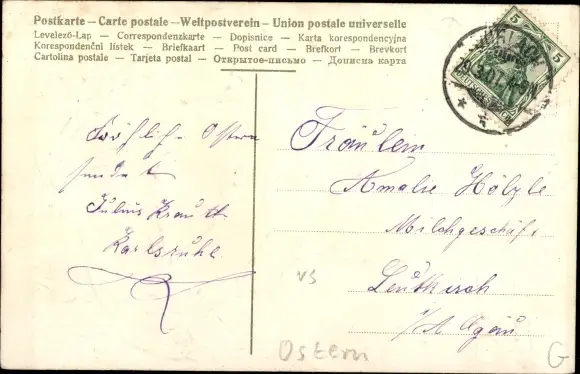 Postkarte – Carte postale – Weltpostverein – Union postale universelle
Levelező-Lap — Correspondenzkarte — Dopisnice — Karta korespondencyjna
Korespondenční lístek — Briefkaart — Post card — Brefkort — Brevkort
Cartolina postale — Tarjeta postal — Открытое-письмо — Дописна карта
5 5
Fröhliche Ostern
sendet
Julius Krauth
Karlsruhe
Fräulein
Amalie Hölzle
Milchgeschäf.
Leutkirch
i/A Algäu
vs
Ostern
G